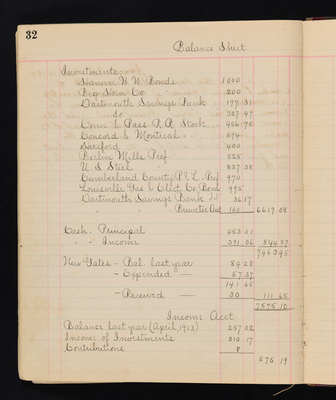 32
Balance Sheet
Investments
W W Bonds 1000
Co 200
Dartmouth Savings Bank 177 31
do 327 47
Conn & Pass R.R. Stock
Concord & Montreal
400
Berlin Mills Pref 525
U. S. Steel
Cumberland County P & L. Pref 970
Louisville Gas & Elect. Co. Bond 995
Dartmouth Savings Bank 36 17
6619 09
Cash - Principal 453 01
" - Income 391 36 844 37
New Gates - Bal. last year 84 28
- Expended - 57 37
141 65
- Received - 30 111 65
7575 10
Income Acct
Balance last year (April 1913) 257 02
Income of Investments 310 17
Contributions
576 19